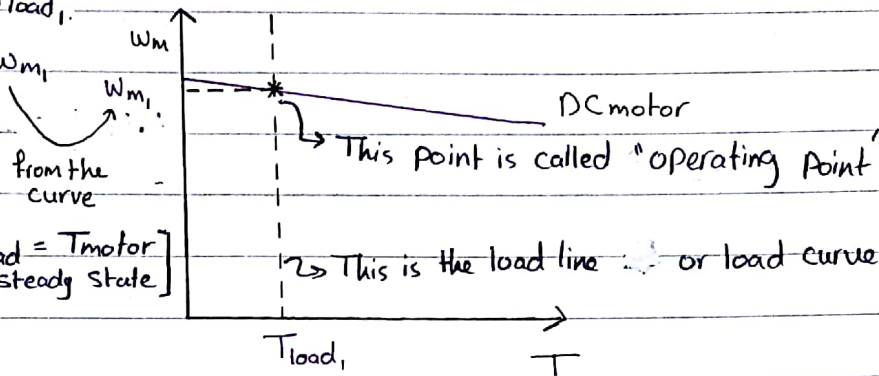 load₁.
ωm
ωm₁
ωm₁
DC motor
from the
curve
This point is called "operating point"
ad = Tmotor]
steady state]
This is the load line or load curve
Tload₁
T